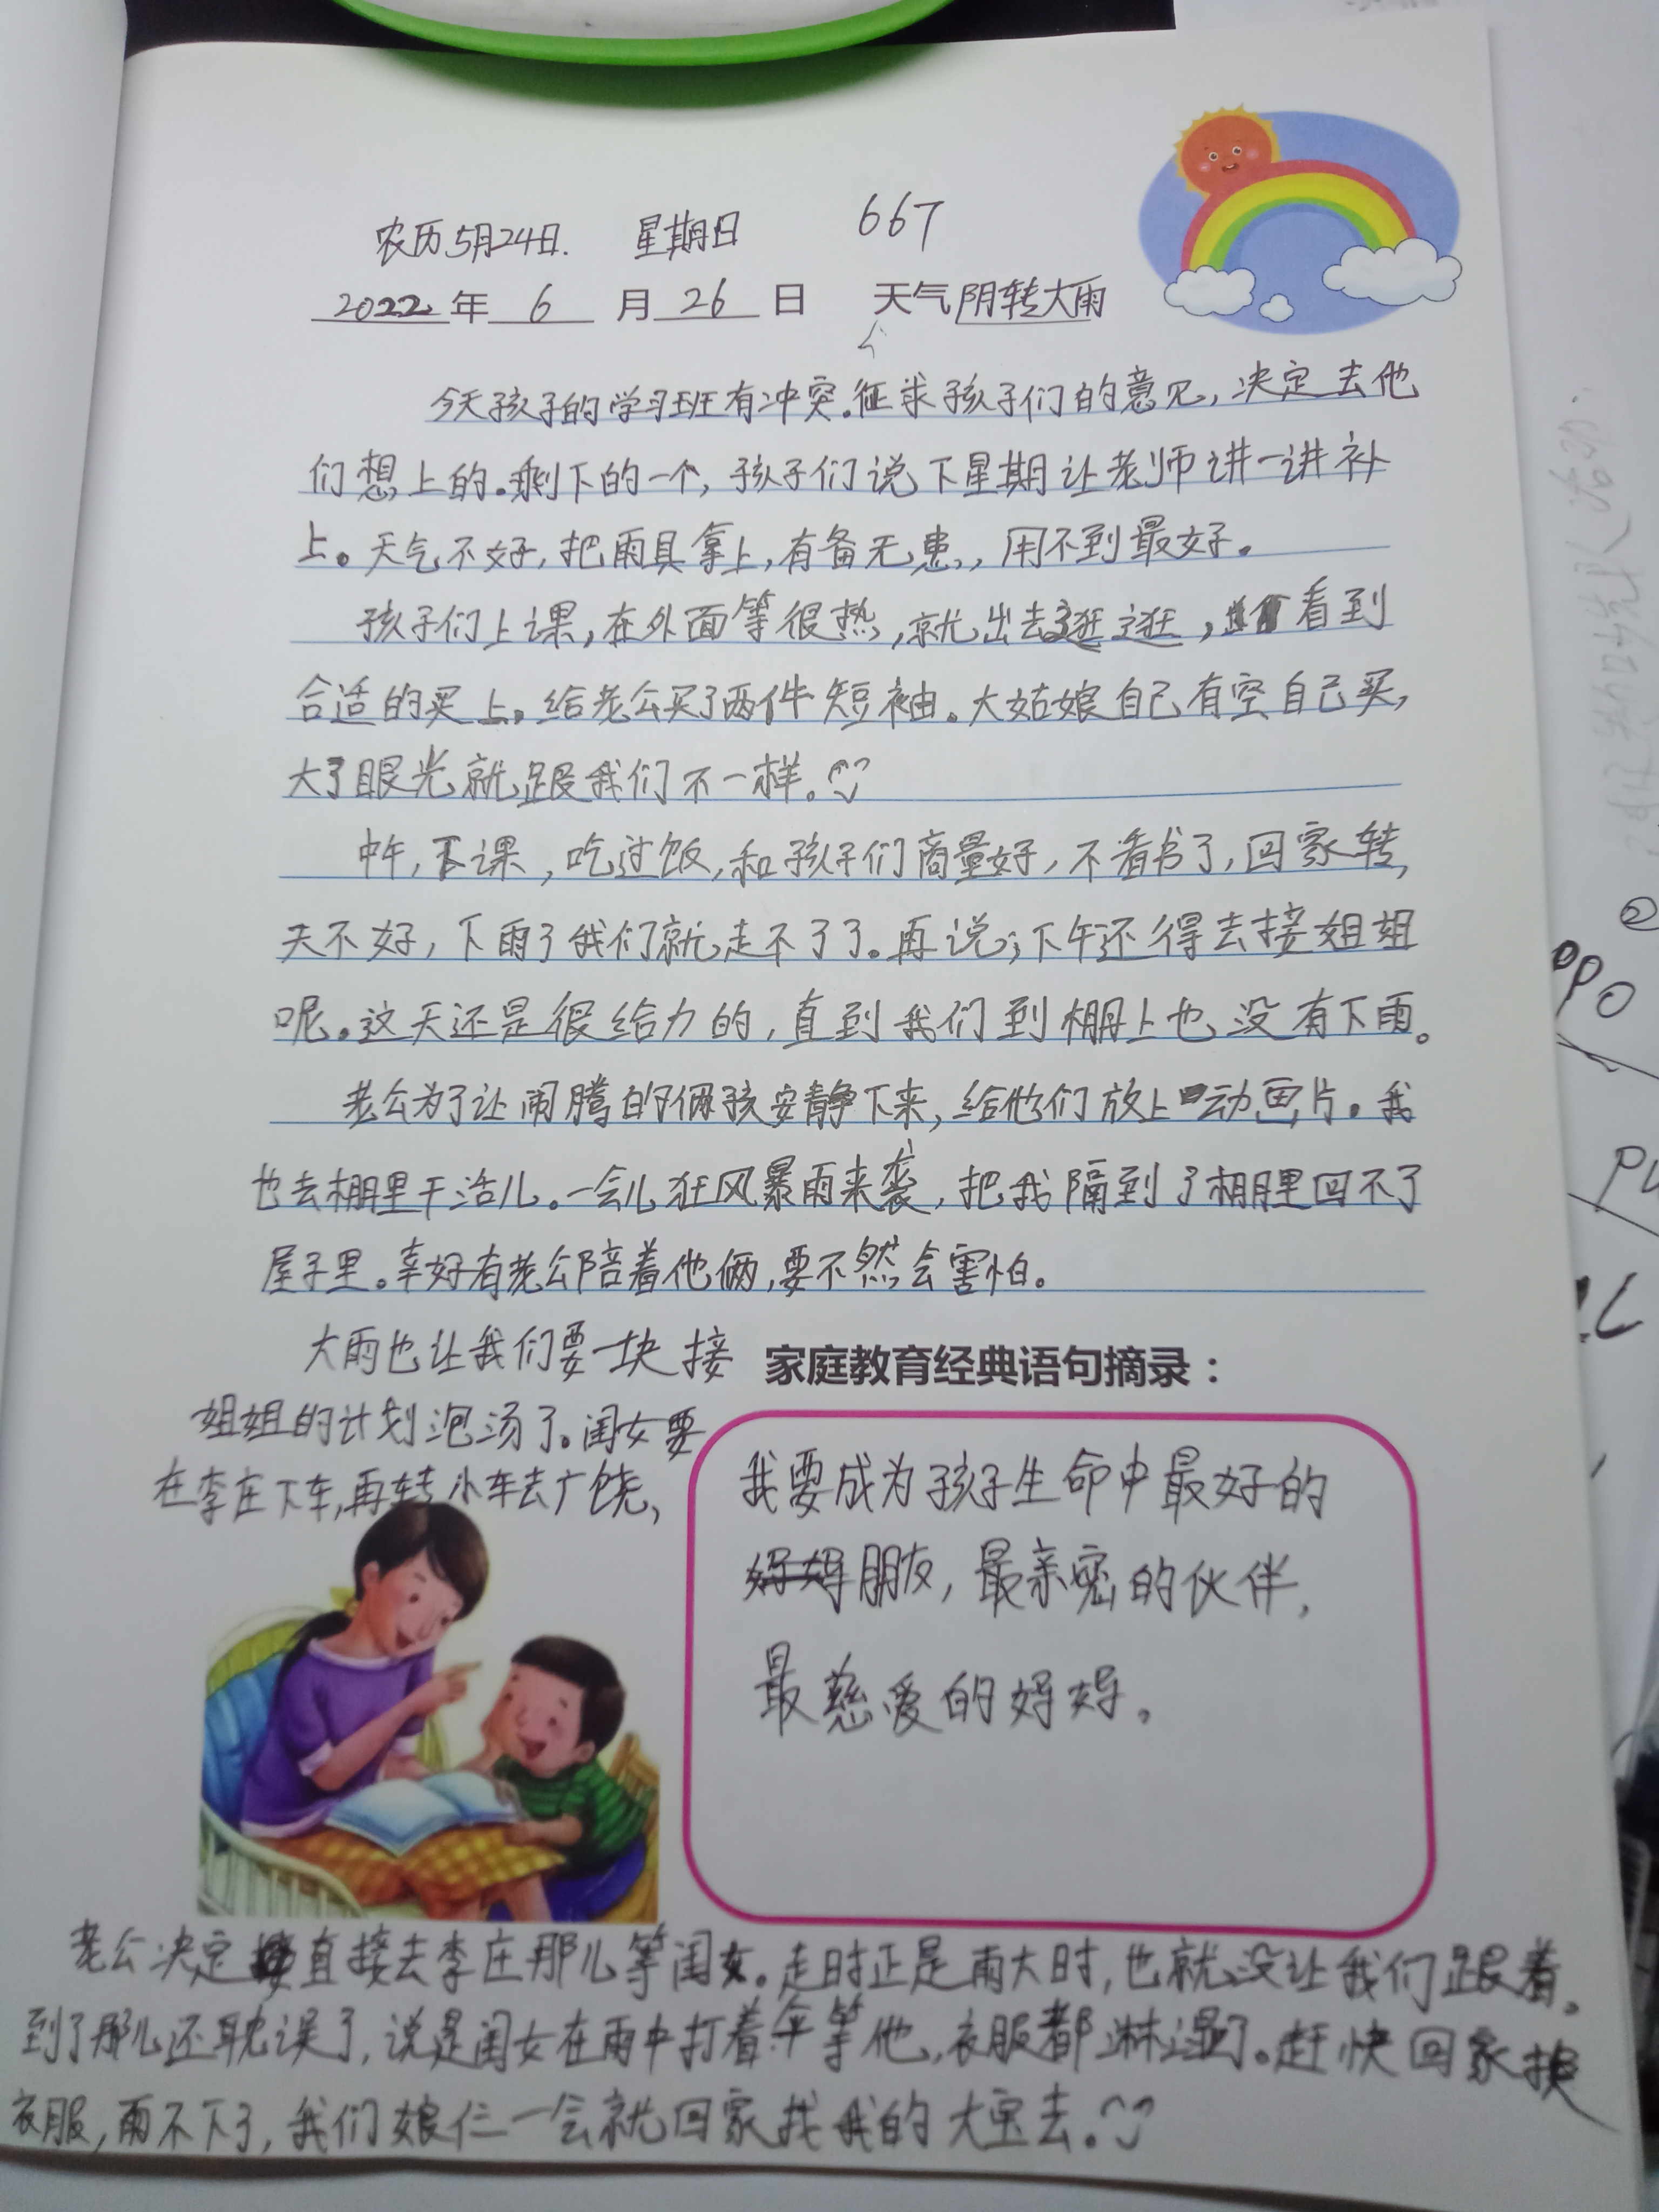 农历5月24日. 星期日 667
2022年6月26日 天气阴转大雨
今天孩子的学习班有冲突.征求孩子们的意见,决定去他
们想上的.剩下的一个,孩子们说下星期让老师讲一讲补
上。天气不好,把雨具拿上,有备无患,用不到最好。
孩子们上课,在外面等很热,就出去逛逛,看到
合适的买上。给老公买了两件短袖。大姑娘自己有空自己买,
大了眼光就跟我们不一样。
中午,下课,吃过饭,和孩子们商量好,不看书了,回家转,
天不好,下雨了我们就走不了了。再说;下午还得去接姐姐
呢。这天还是很给力的,直到我们到棚上也没有下雨。
老公为了让闹腾的俩孩安静下来,给他们放上动画片。我
也去棚里干活儿。一会儿狂风暴雨来袭,把我隔到了棚里回不了
屋子里。幸好有老公陪着他俩,要不然会害怕。
大雨也让我们要一块接
姐姐的计划泡汤了。闺女要
在李庄下车,再转小车去广饶,
家庭教育经典语句摘录：
我要成为孩子生命中最好的
朋友,最亲密的伙伴,
最慈爱的妈妈。
老公决定直接去李庄那儿等闺女。走时正是雨大时,也就没让我们跟着。
到了那儿还耽误了,说是闺女在雨中打着伞等他,衣服都淋湿了。赶快回家换
衣服,雨不下了,我们娘仨一会就回家找我的大宝去。